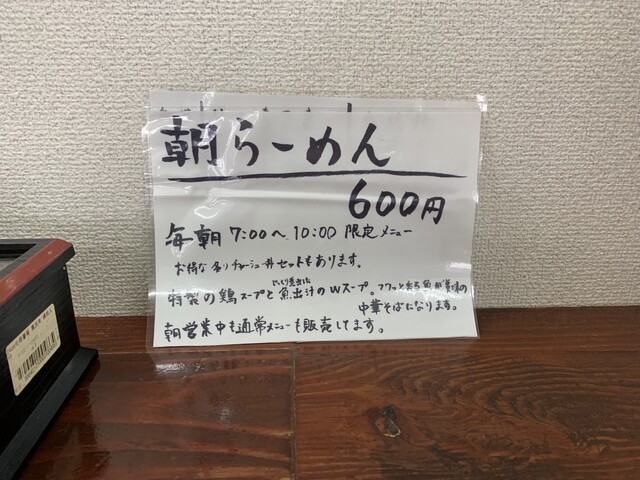 朝らーめん
600円
毎朝 7:00〜10:00 限定メニュー
お得な 炙りチャーシュー丼 セットもあります。
特製の鶏スープと魚出汁のWスープ。フワッと香る魚が美味の
中華そばになります。
朝営業中も通常メニューも販売してます。